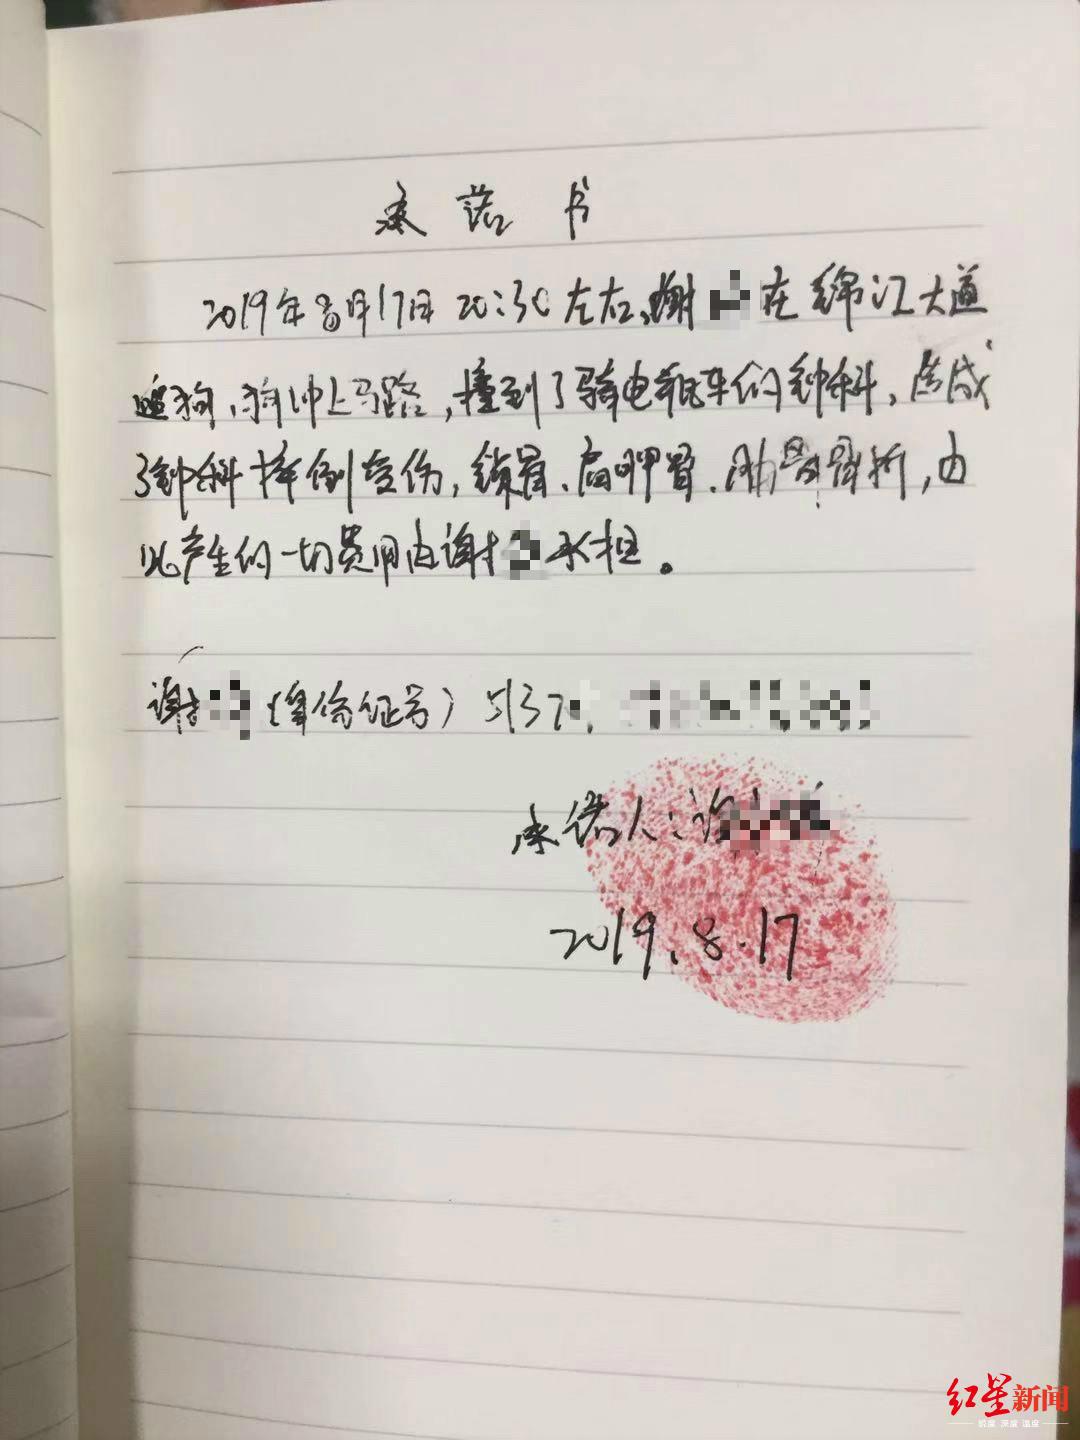 承诺书
2019年8月17日 20:30左右,谢 在锦江大道
遛狗,狗冲上马路,撞到了骑电瓶车的钟科,造成
了钟科摔倒受伤,锁骨、肩胛骨、肋骨骨折,由
此产生的一切费用由谢 承担。
谢 (身份证号) 5137
承诺人:谢
2019.8.17
红星新闻
锐度 深度 温度